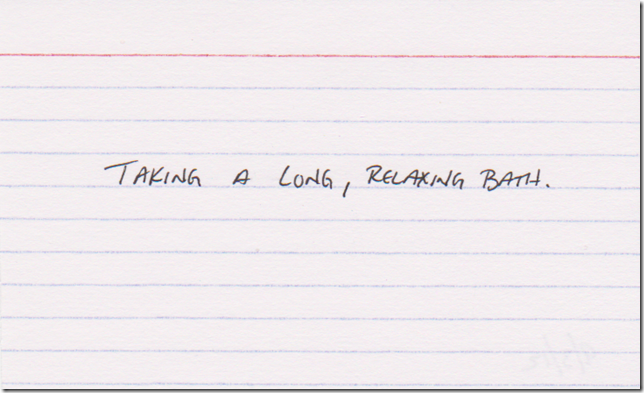 TAKING A LONG, RELAXING BATH.